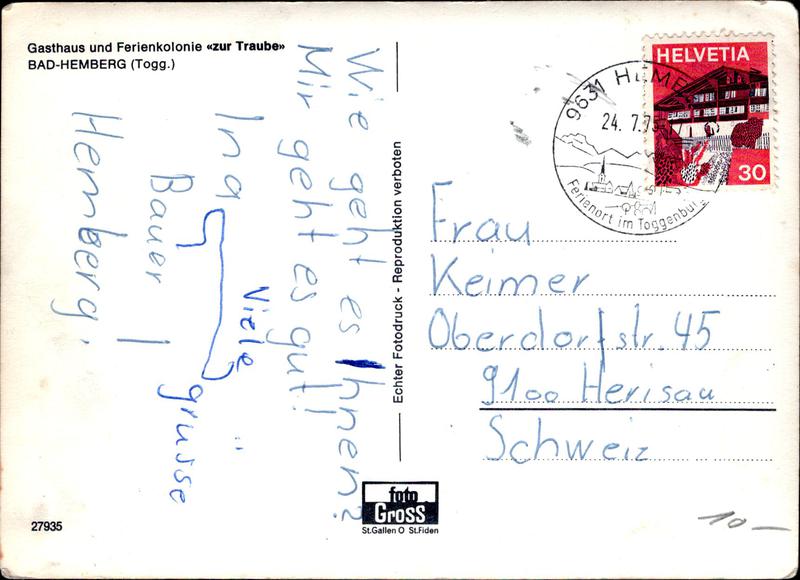 Gasthaus und Ferienkolonie «zur Traube»
BAD-HEMBERG (Togg.)
Wie geht es Ihnen?
Mir geht es gut!
Viele grüsse
Ina
Bauer
Hemberg.
Echter Fotodruck - Reproduktion verboten
HELVETIA
30
9631 HEMBE
24. 7.75
Ferienort im Toggenbur
Frau
Keimer
Oberdorfstr. 45
9100 Herisau
Schweiz
foto
Gross
St.Gallen O St.Fiden
27935
10.–